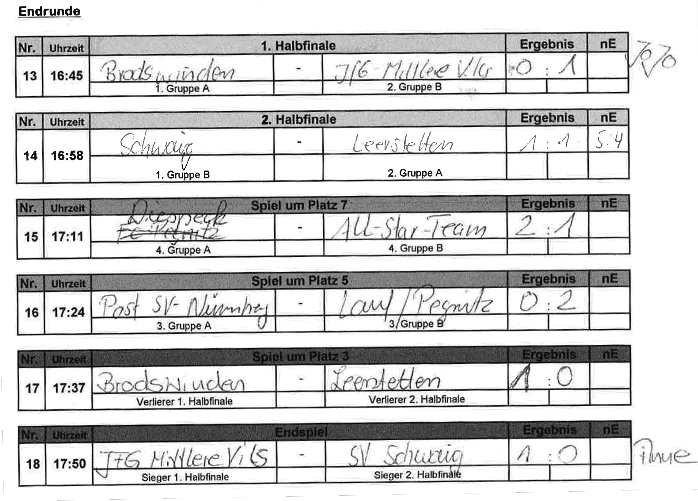 Endrunde
Nr. Uhrzeit 1. Halbfinale Ergebnis nE
13 16:45 Brodswinden - JfG Mittlere Vils 0 : 1
1. Gruppe A 2. Gruppe B
Nr. Uhrzeit 2. Halbfinale Ergebnis nE
14 16:58 Schwaig - Leerstetten 1 : 1 5:4
1. Gruppe B 2. Gruppe A
Nr. Uhrzeit Spiel um Platz 7 Ergebnis nE
Diespeck
15 17:11 FC Pegnitz - All-Star-Team 2 : 1
4. Gruppe A 4. Gruppe B
Nr. Uhrzeit Spiel um Platz 5 Ergebnis nE
16 17:24 Post SV-Nürnberg - Lauf/Pegnitz 0 : 2
3. Gruppe A 3. Gruppe B
Nr. Uhrzeit Spiel um Platz 3 Ergebnis nE
17 17:37 Brodswinden - Leerstetten 1 : 0
Verlierer 1. Halbfinale Verlierer 2. Halbfinale
Nr. Uhrzeit Endspiel Ergebnis nE
18 17:50 JFG Mittlere Vils - SV Schwaig 1 : 0
Sieger 1. Halbfinale Sieger 2. Halbfinale